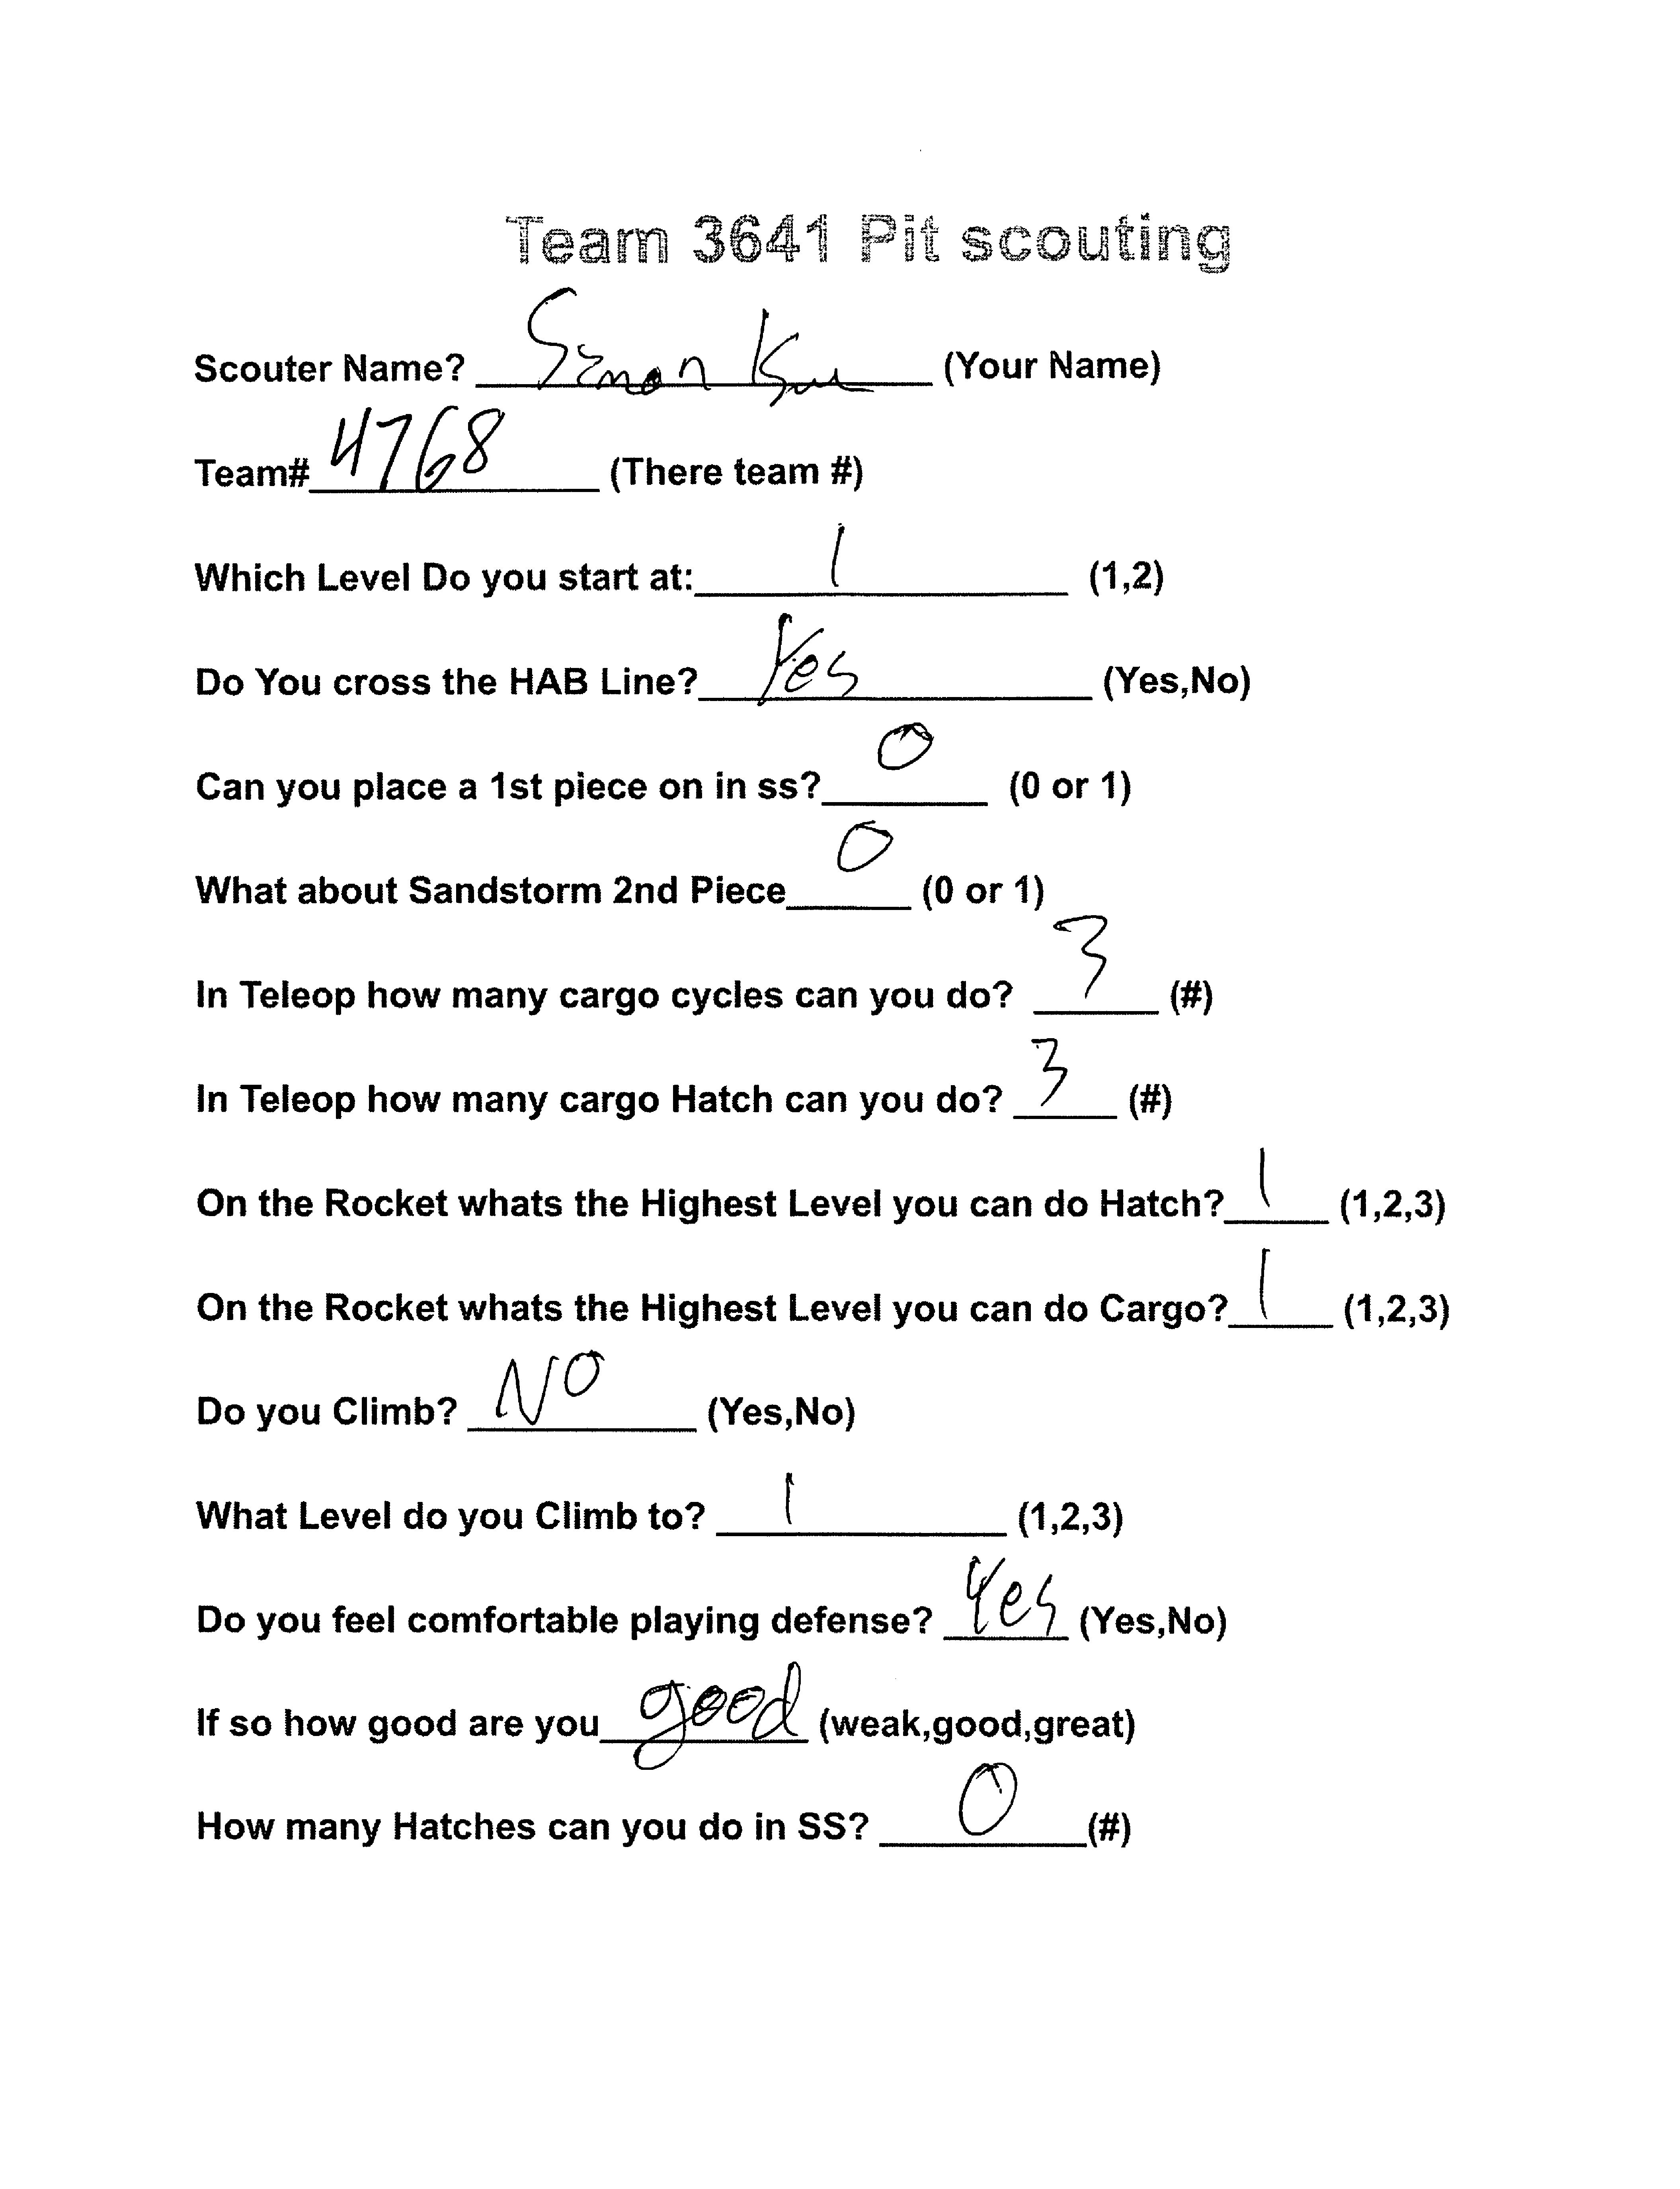 Team 3641 Pit scouting
Scouter Name? Simon (Your Name)
Team# 4768 (There team #)
Which Level Do you start at: 1 (1,2)
Do You cross the HAB Line? Yes (Yes,No)
Can you place a 1st piece on in ss? 0 (0 or 1)
What about Sandstorm 2nd Piece 0 (0 or 1)
In Teleop how many cargo cycles can you do? 3 (#)
In Teleop how many cargo Hatch can you do? 3 (#)
On the Rocket whats the Highest Level you can do Hatch? 1 (1,2,3)
On the Rocket whats the Highest Level you can do Cargo? 1 (1,2,3)
Do you Climb? NO (Yes,No)
What Level do you Climb to? 1 (1,2,3)
Do you feel comfortable playing defense? Yes (Yes,No)
If so how good are you good (weak,good,great)
How many Hatches can you do in SS? 0 (#)